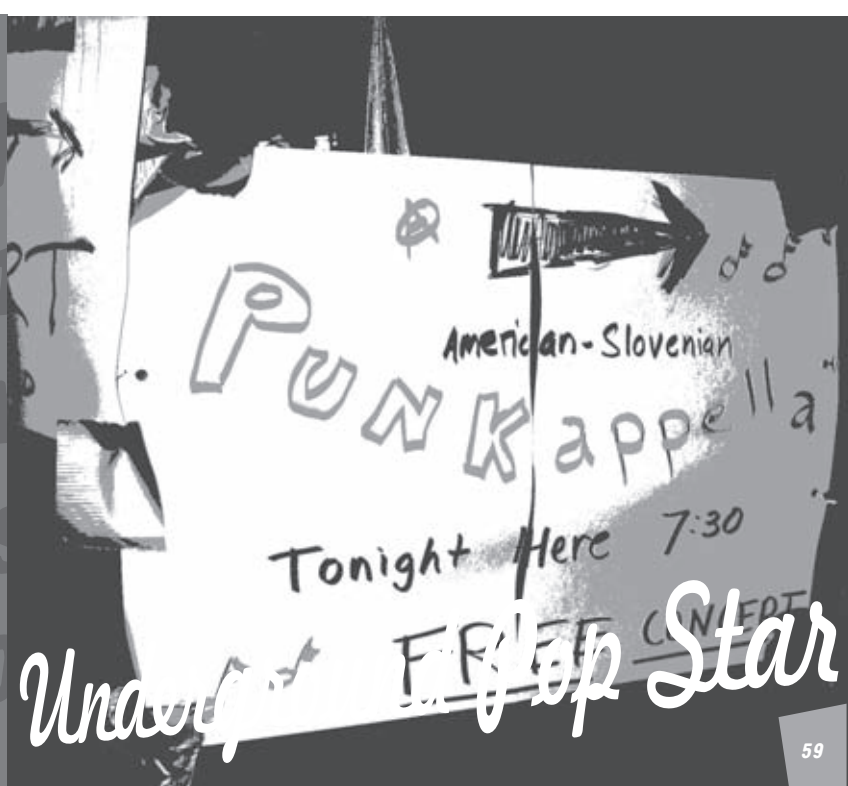 RT
American-Slovenian
Punkappella
Tonight Here 7:30
FREE CONCERT
Underground Pop Star
59